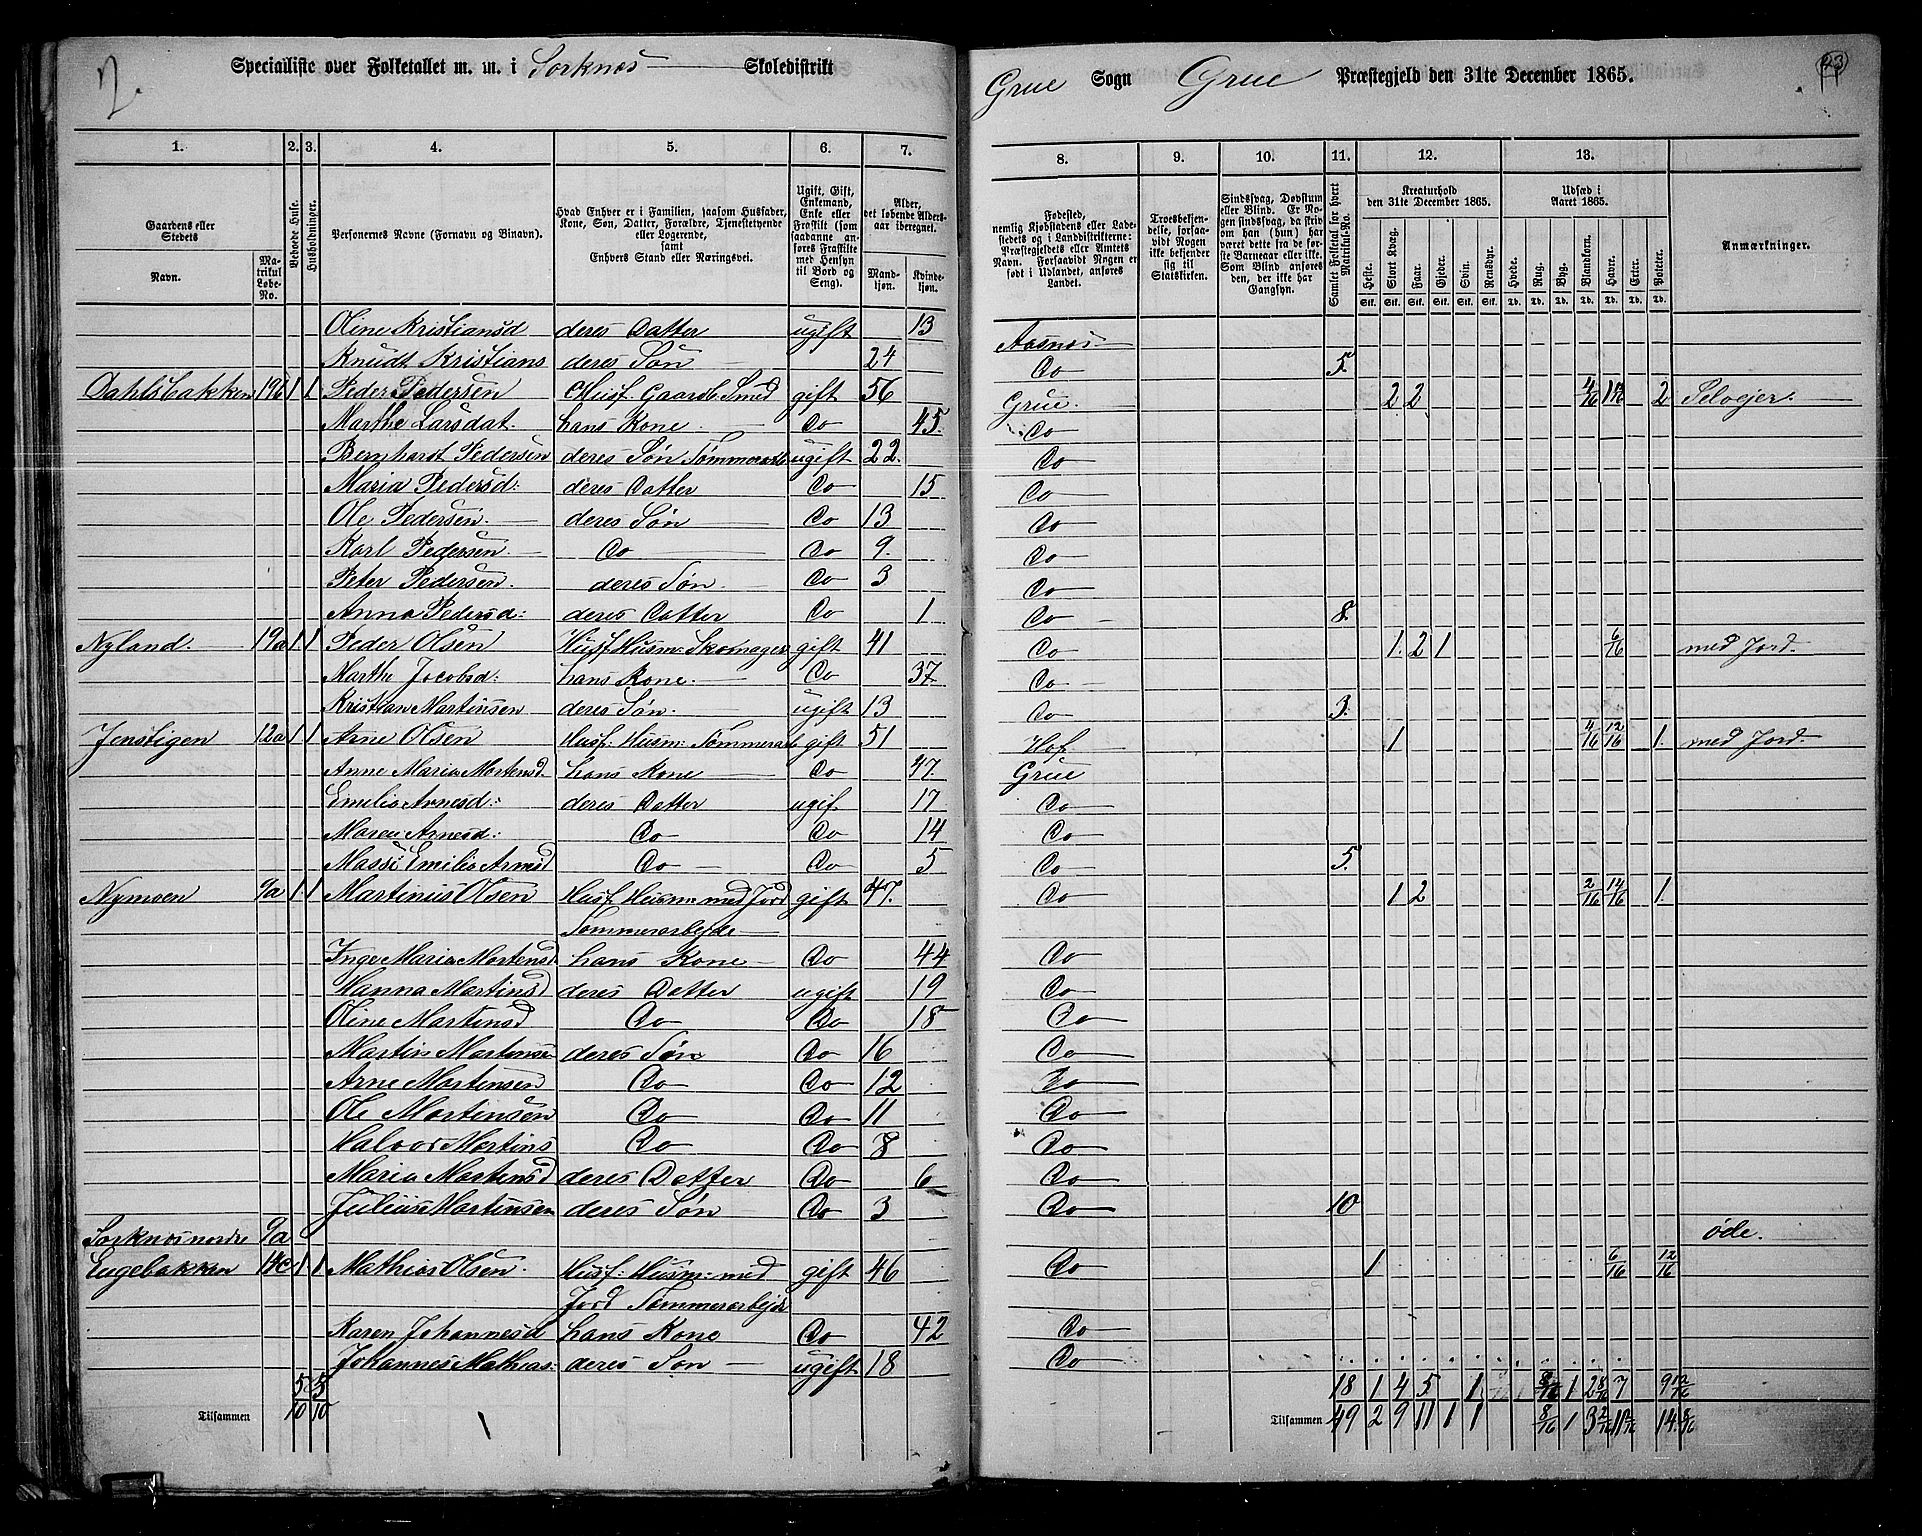 2.
Specialliste over Folketallet m. m. i Sorknæs Skoledistrikt
Grue Sogn Grue Præstegjeld den 31te December 1865.
23
1. 2. 3. 4. 5. 6. 7. 8. 9. 10. 11. 12. 13.
Gaardens eller Stedets
Navn.
Matrikul Løbe-No.
Beboede Huse.
Husholdninger.
Personernes Navne (Fornavn og Binavn).
Hvad Enhver er i Familien, saasom Husfader, Kone, Søn, Datter, Forældre, Tjenestetyende eller Logerende, samt Enhvers Stand eller Næringsvei.
Ugift, Gift, Enkemand, Enke eller Fraskilt (som saadanne anføres Fraskilte med Hensyn til Bord og Seng).
Alder, det løbende Aldersaar iberegnet.
Mandkjøn. Kvindekjøn.
Fødested, nemlig Kjøbstadens eller Ladestedets og i Landdistrikterne: Præstegjeldets eller Amtets Navn. Forsaavidt Nogen er født i Udlandet, anføres Landet.
Troesbekjendelse, forsaavidt Nogen ikke bekjender sig til Statskirken.
Sindssvag, Døvstum eller Blind. Er Nogen sindssvag, da skrives om han (hun) har været dette fra de første Barneaar eller ikke. Som Blind anføres den, der ikke har Gangsyn.
Samlet Folketal for hvert Matrikul-No.
Kreaturhold den 31te December 1865.
Heste. Stort Kvæg. Faar. Gjeder. Svin. Rensdyr.
Udsæd i Aaret 1865.
Hvede. Rug. Byg. Blandkorn. Havre. Erter. Poteter.
Anmærkninger.
Oline Kristiansd deres Datter ugift 13 Aasnæs
Knudt Kristians deres Søn 24 Do 5.
Dahlsbakken 19b 1 1 Peder Pedersen Husf. Gaardb. Smed gift 56 Grue 2 2 4/16 2 Selvejer.
Marthe Larsdat. hans Kone Do 45. Do
Bernhardt Pedersen deres Søn Tømmerarb ugift 22. Do
Maria Pedersd: deres Datter Do 15 Do
Ole Pedersen deres Søn Do 13 Do
Karl Pedersen Do Do 9. Do
Peter Pedersen deres Søn Do 3 Do
Anna Pedersd: deres Datter Do 1 Do 8.
Nyland. 19a 1 1 Peder Olsen Husf. Husm: Skomager gift 41 Do 1. 2 1 6/16 med Jord.
Marthe Jocobsd: hans Kone Do 37 Do
Kristian Martinsen deres Søn ugift 13 Do 3.
Jenstigen 12a 1 1 Arne Olsen Husf: Husm: Tømmerarb gift 51 Hof 1 4/16 12/16 1. med Jord.
Anne Maria Mortensd hans Kone Do 47. Grue
Emilie Arnesd: deres Datter ugif 17 Do
Maren Arnesd: Do Do 14 Do
Massi Emilie Arnesd Do Do 5 Do 5.
Nymoen 9a 1 1 Martinus Olsen Husf. Husm: med Jord gift 47. Do 1 2 2/16 14/16 1.
Tømmerarbejde
Inge Maria Mortensd hans Kone Do 44 Do
Hanna Martinsd deres Datter ugift 19 Do
Oline Martinsd Do Do 18 Do
Martin Martinsen deres Søn Do 16 Do
Arne Martinsen Do Do 12 Do
Ole Martinsen Do Do 11 Do
Halvor Martins Do Do 8 Do
Maria Martinsd deres Datter Do 6 Do
Julius Martinsen deres Søn Do 3 Do 10
Sorknæs nordre 9a øde.
Engebakken 14c 1 1 Mathias Olsen. Husf: Husm: med gift 46 Do 1 6/16 12/16
Jord Tømmerarbejde
Karen Johannesd hans Kone Do 42 Do
Johannes Mathias: deres Søn ugift 18 Do
5 5 18 1 4 5 1 8/16 1 2 8/16 7 9 12/16
Tilsammen 10 10 Tilsammen 49 2 9 11 1 1 8/16 1 3 2/16 14 8/16